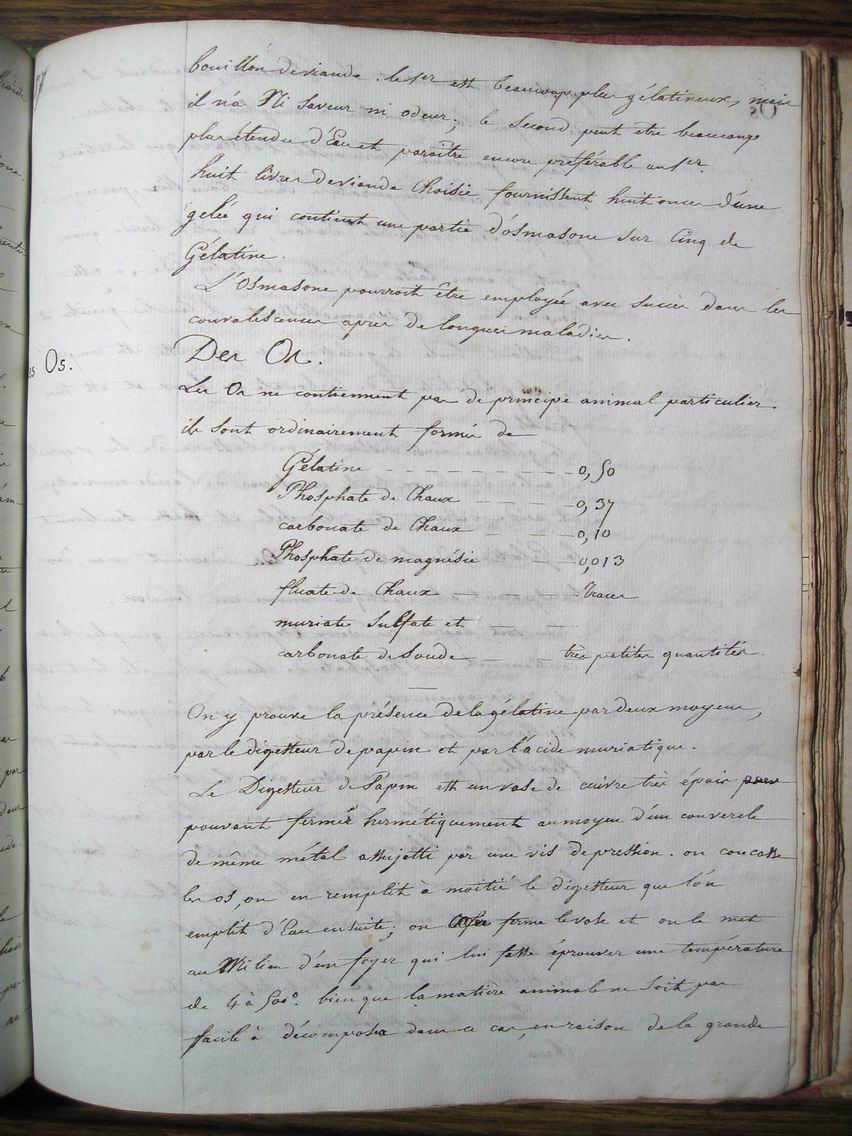 bouillon de viande. le 1er est beaucoup plus gélatineux, mais
il n'a Ni saveur ni odeur; le second peut etre beaucoup
plus étendu d'Eau et paroître encore préférable au 1er.
huit livres de viande Choisie fournissent huit onces d'une
gelée qui contient une partie d'osmasone sur Cinq de
Gélatine.
L'Osmasone pourroit être employée avec succès dans les
convalescences après de longues maladies.
Des Os.
Os.
Les Os ne contiennent pas de principe animal particulier.
ils sont ordinairement formés de
Gélatine 0,50
Phosphate de Chaux 0,37
carbonate de Chaux 0,10
Phosphate de magnésie 0,013
fluate de Chaux Traces
muriate Sulfate et
carbonate de Soude très petites quantités.
On y prouve la présence de la gélatine par deux moyens,
par le digesteur de papin et par l'acide muriatique.
Le Digesteur de Papin est un vase de cuivre très épais
pouvant fermer hermétiquement au moyen d'un couvercle
de même métal assujetti par une vis de pression. on concasse
les os, on en remplit à moitié le digesteur que l'on
emplit d'Eau ensuite; on ferme le vase et on le met
au Milieu d'un foyer qui lui fasse éprouver une température
de 4 à 500°. bien que la matière animale ne soit pas
facile à décomposer dans ce cas, en raison de la grande